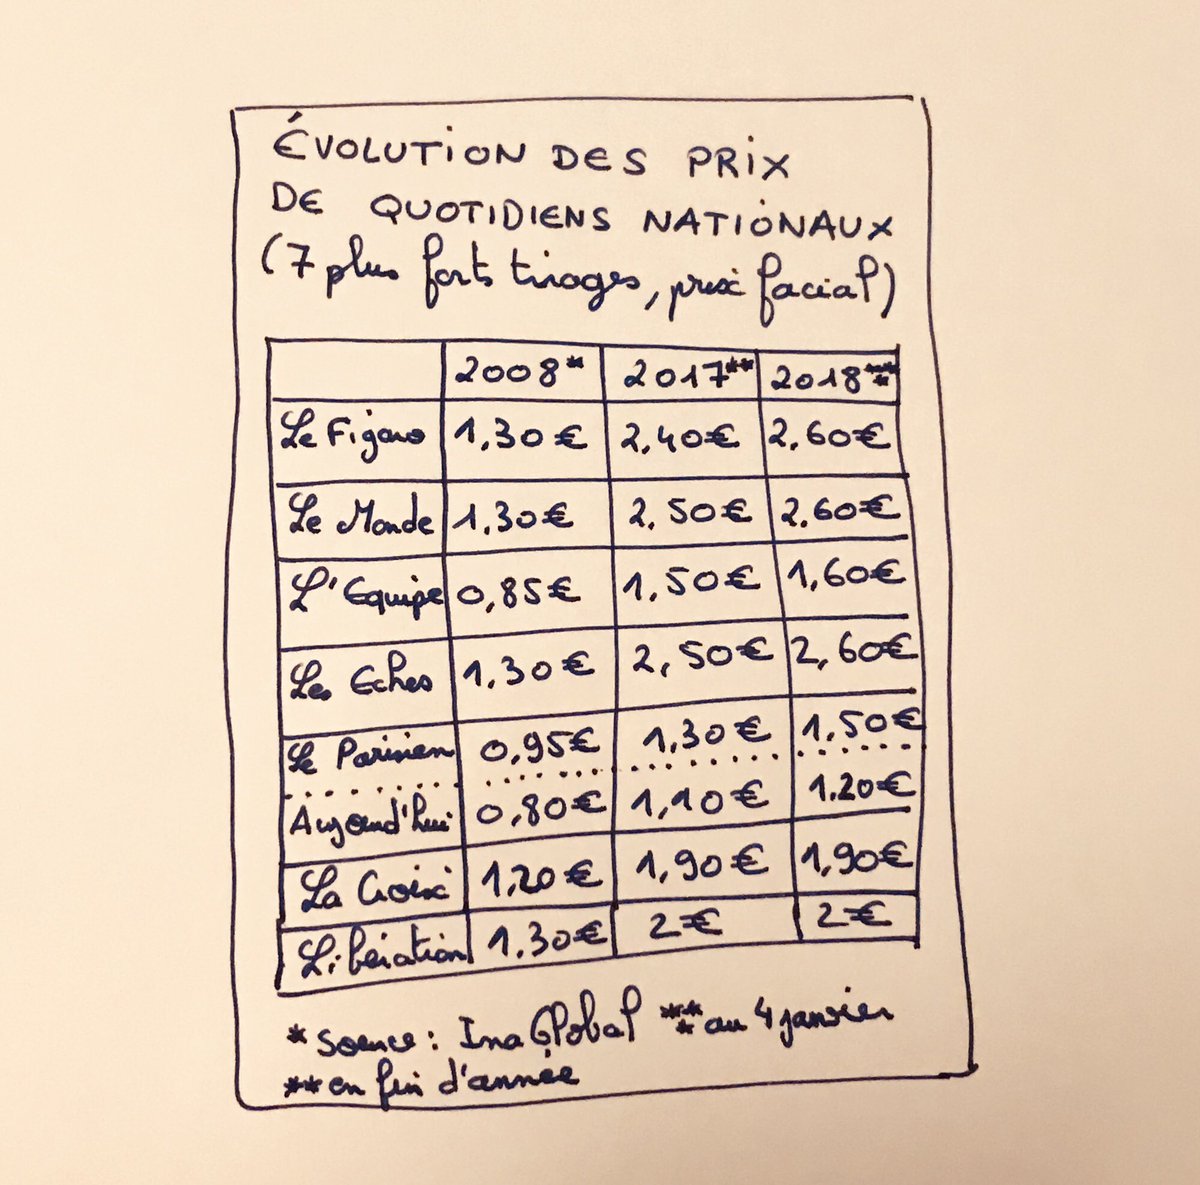 ÉVOLUTION DES PRIX
DE QUOTIDIENS NATIONAUX
(7 plus forts tirages, prix facial)
2008* 2017** 2018***
Le Figaro 1,30€ 2,40€ 2,60€
Le Monde 1,30€ 2,50€ 2,60€
L'Equipe 0,85€ 1,50€ 1,60€
Les Echos 1,30€ 2,50€ 2,60€
Le Parisien 0,95€ 1,30€ 1,50€
Aujourd'hui 0,80€ 1,10€ 1.20€
La Croix 1,20€ 1,90€ 1,90€
Libération 1,30€ 2€ 2€
* Source : Ina Global *** au 4 janvier
** en fin d'année